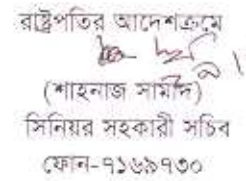 রাষ্ট্রপতির আদেশক্রমে
(শাহনাজ সামাদ)
সিনিয়র সহকারী সচিব
ফোন-৭১৬৯৭৩০